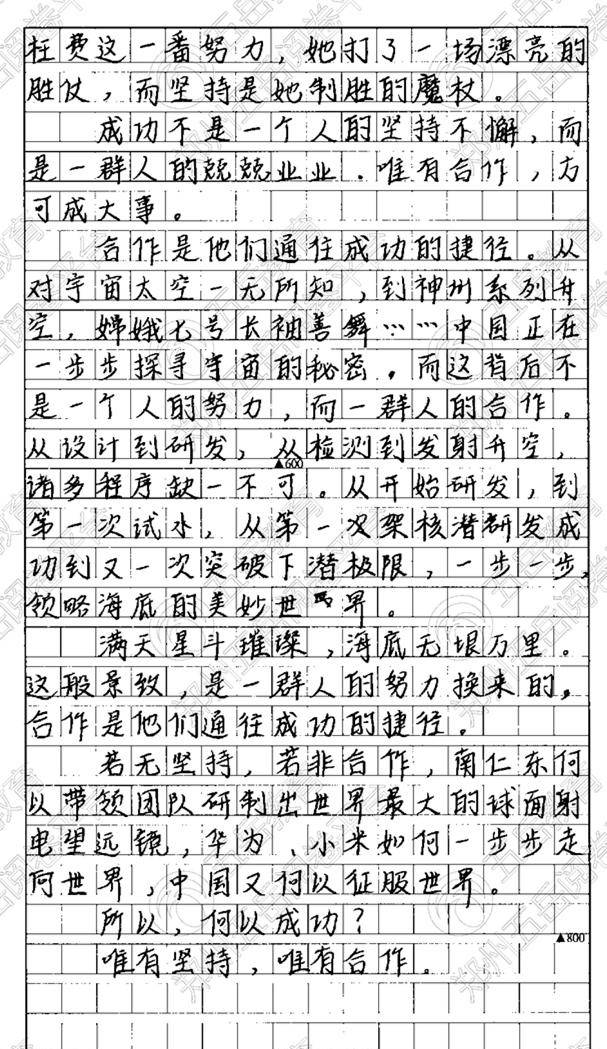 枉费这一番努力，她打了一场漂亮的
胜仗，而坚持是她制胜的魔杖。
成功不是一个人的坚持不懈，而
是一群人的兢兢业业．唯有合作，方
可成大事。
合作是他们通往成功的捷径。从
对宇宙太空一无所知，到神州系列升
空，嫦娥七号长袖善舞……中国正在
一步步探寻宇宙的秘密。而这背后不
是一个人的努力，而一群人的合作。
从设计到研发，从检测到发射升空，
▲600
诸多程序缺一不可。从开始研发，到
第一次试水，从第一次架核潜研发成
功到又一次突破下潜极限，一步一步，
领略海底的美妙世界。
满天星斗璀璨，海底无垠万里。
这般景致，是一群人的努力换来的，
合作是他们通往成功的捷径。
若无坚持，若非合作，南仁东何
以带领团队研制出世界最大的球面射
电望远镜，华为、小米如何一步步走
向世界，中国又何以征服世界。
所以，何以成功？
▲800
唯有坚持，唯有合作。
郑州五岳阅卷